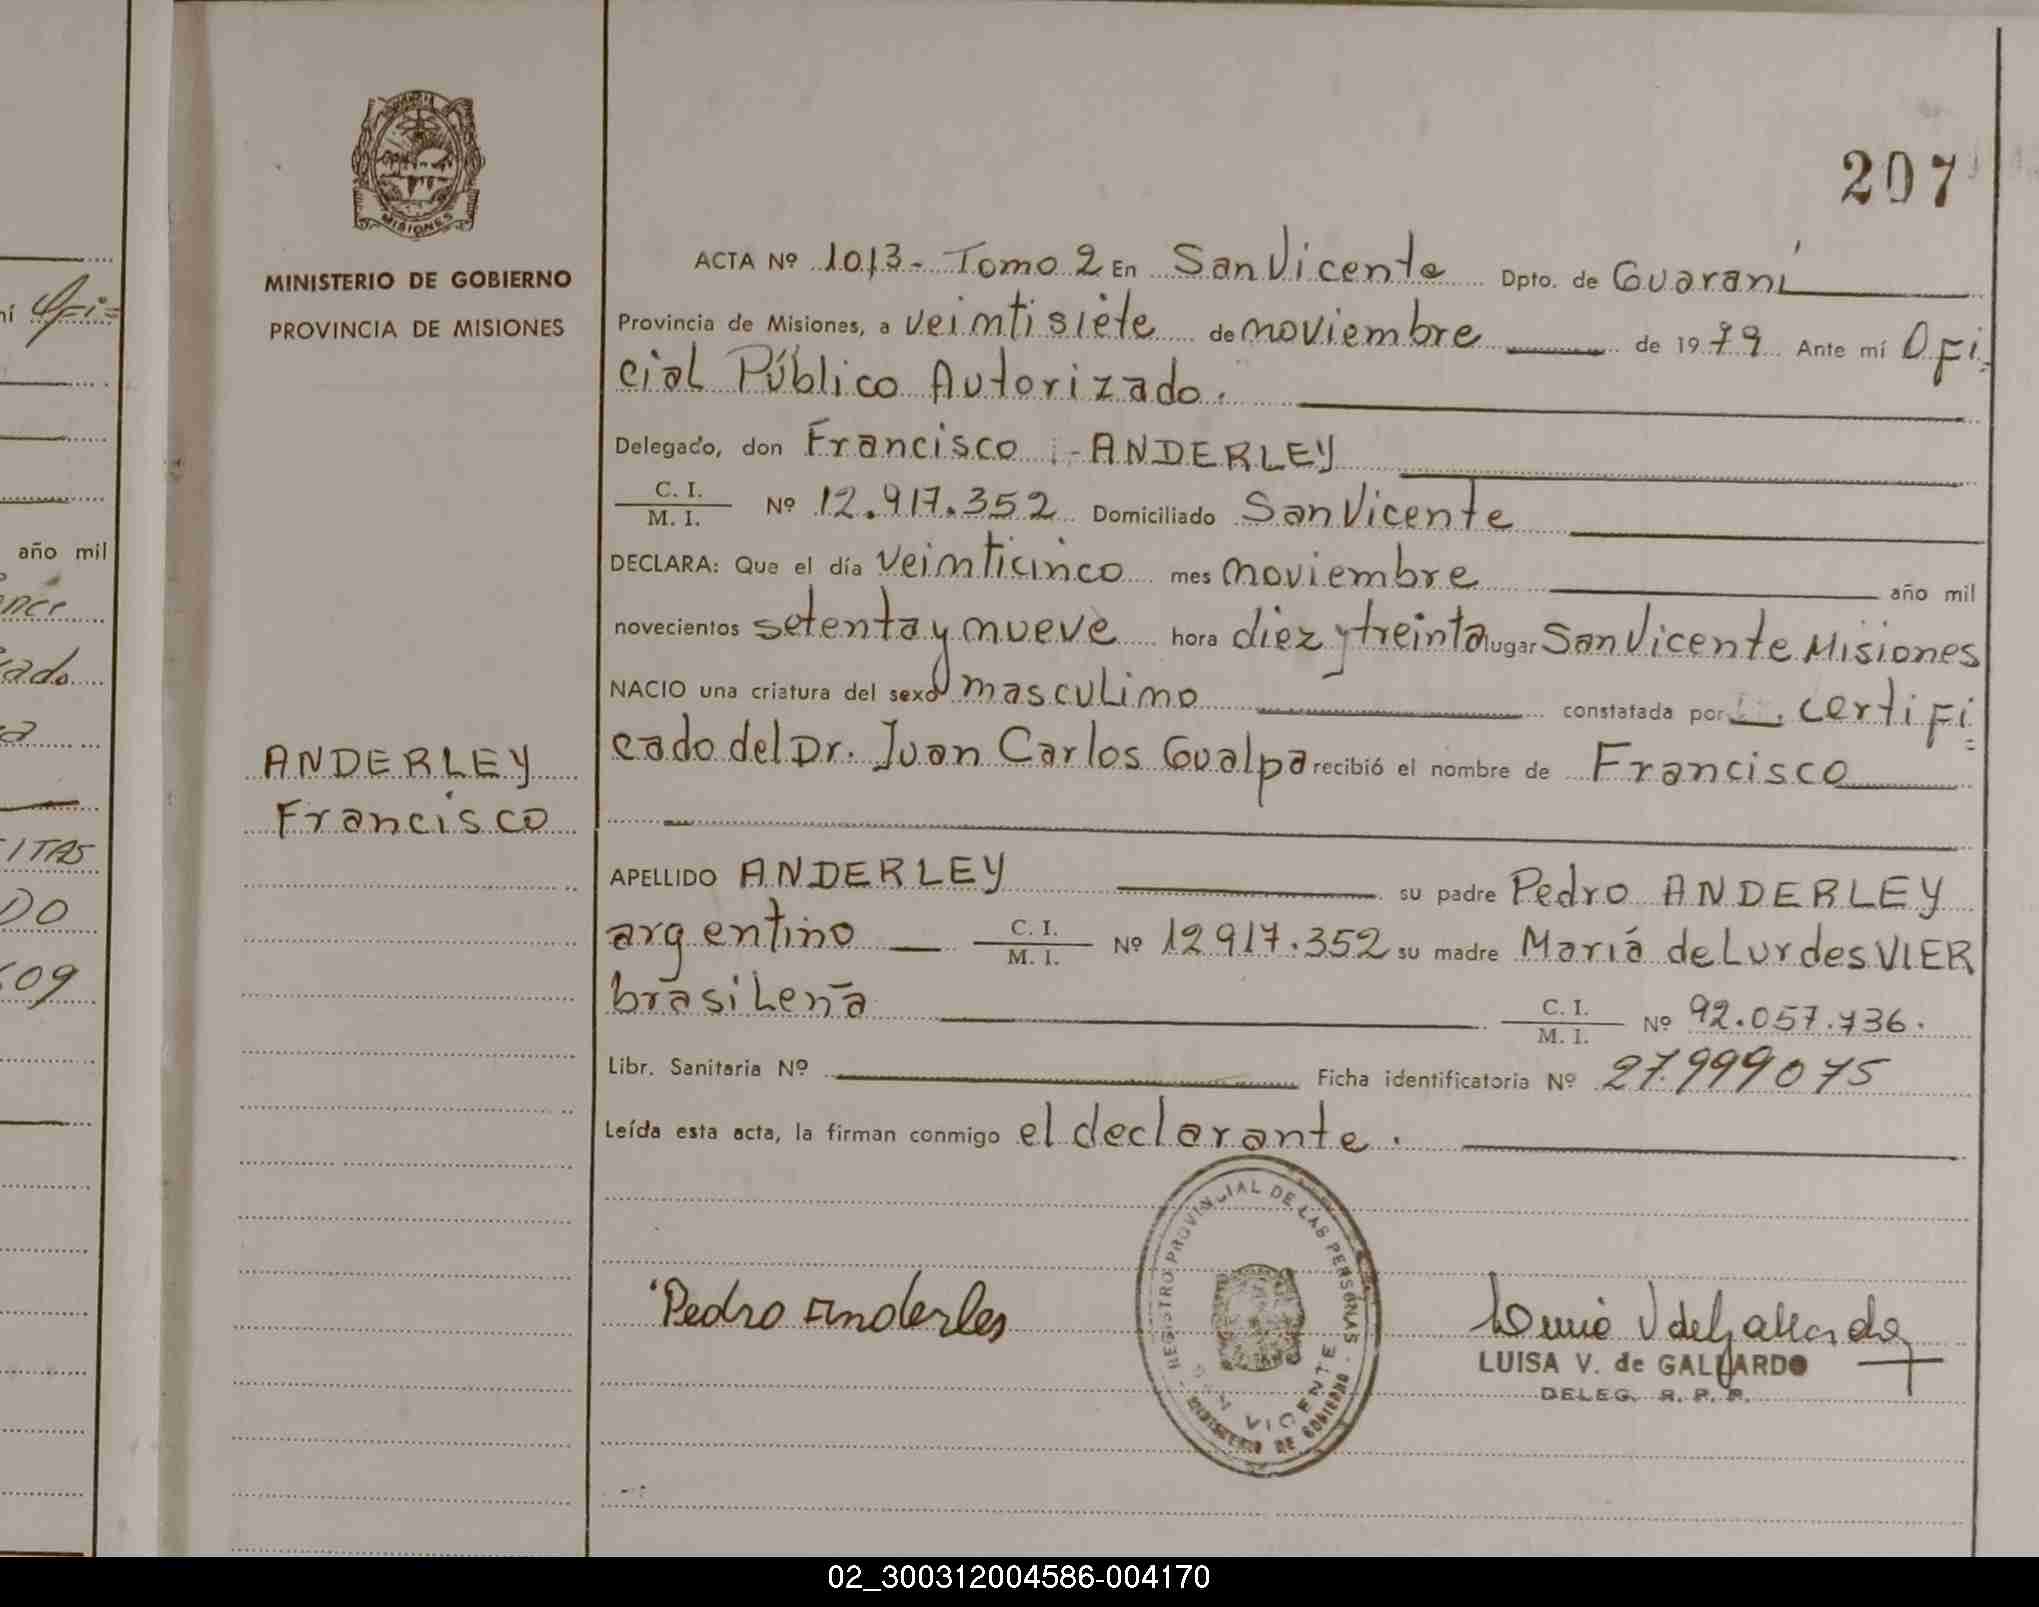 MISIONES
MINISTERIO DE GOBIERNO
PROVINCIA DE MISIONES
ANDERLEY
Francisco
207
ACTA Nº 1013- Tomo 2 En San Vicente Dpto. de Guaraní
Provincia de Misiones, a veintisiete de noviembre de 1979 Ante mí Ofi=
cial Público Autorizado.
Delegado, don Francisco - ANDERLEY
C. I.
M. I. Nº 12.917.352 Domiciliado San Vicente
DECLARA: Que el día veinticinco mes noviembre año mil
novecientos setenta y nueve hora diez y treinta lugar San Vicente Misiones
NACIO una criatura del sexo masculino constatada por certifi=
cado del Dr. Juan Carlos Gualpa recibió el nombre de Francisco
APELLIDO ANDERLEY su padre Pedro ANDERLEY
argentino C. I. M. I. Nº 12917.352 su madre María de Lurdes VIER
brasileña C. I. M. I. Nº 92.057.736.
Libr. Sanitaria Nº Ficha identificatoria Nº 27.999075
Leída esta acta, la firman conmigo el declarante.
Pedro Anderles
REGISTRO PROVINCIAL DE LAS PERSONAS
SAN VICENTE
MINISTERIO DE GOBIERNO
LUISA V. de GALLARDO
DELEG. R. P. P.
mí Ofi=
año mil
ITAS
DO
09
02_300312004586-004170